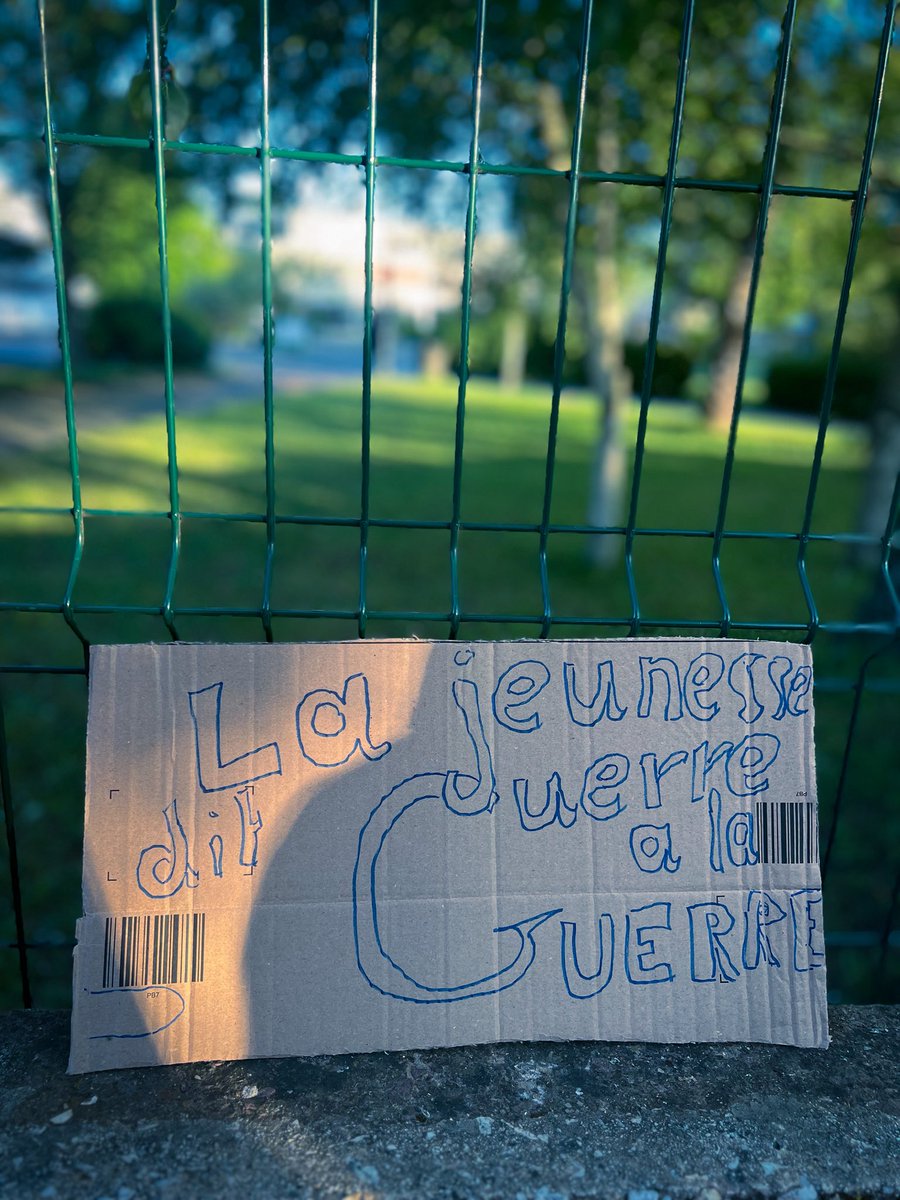 La jeunesse
dit Guerre
a la
GUERRE